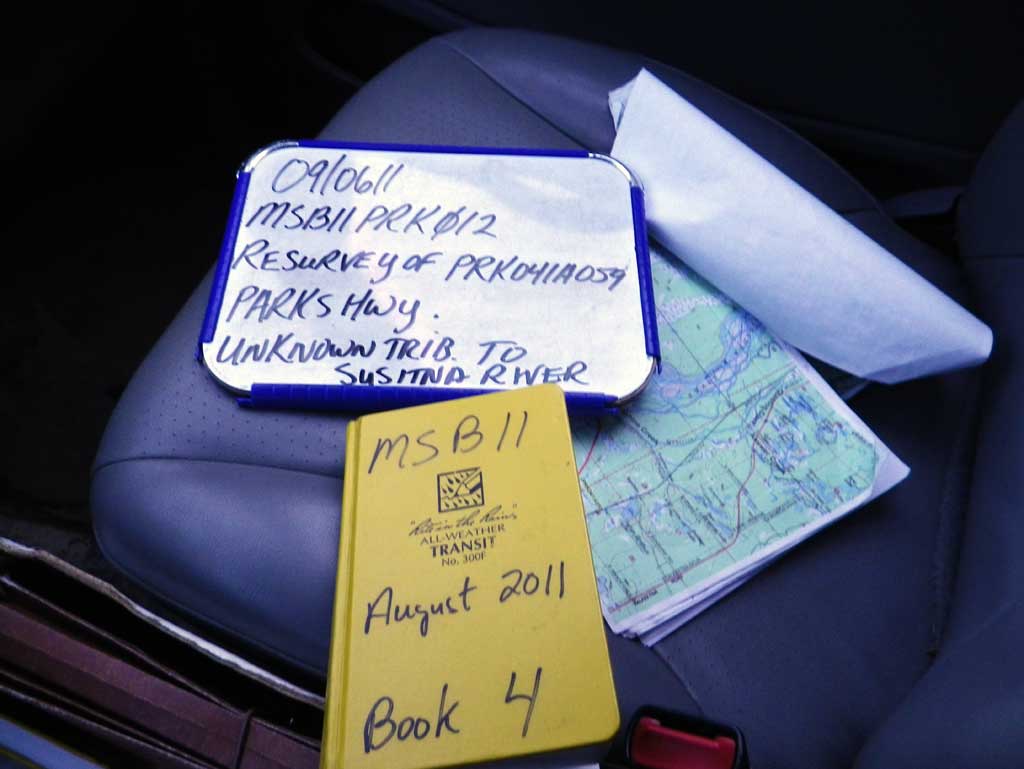 09/0611
MSB11PRKØ12
RESURVEY OF PRK041A059
PARKS HWY.
UNKNOWN TRIB. TO
SUSITNA RIVER
MSB11
"Rite in the Rain"
ALL-WEATHER
TRANSIT
No. 300F
August 2011
Book 4